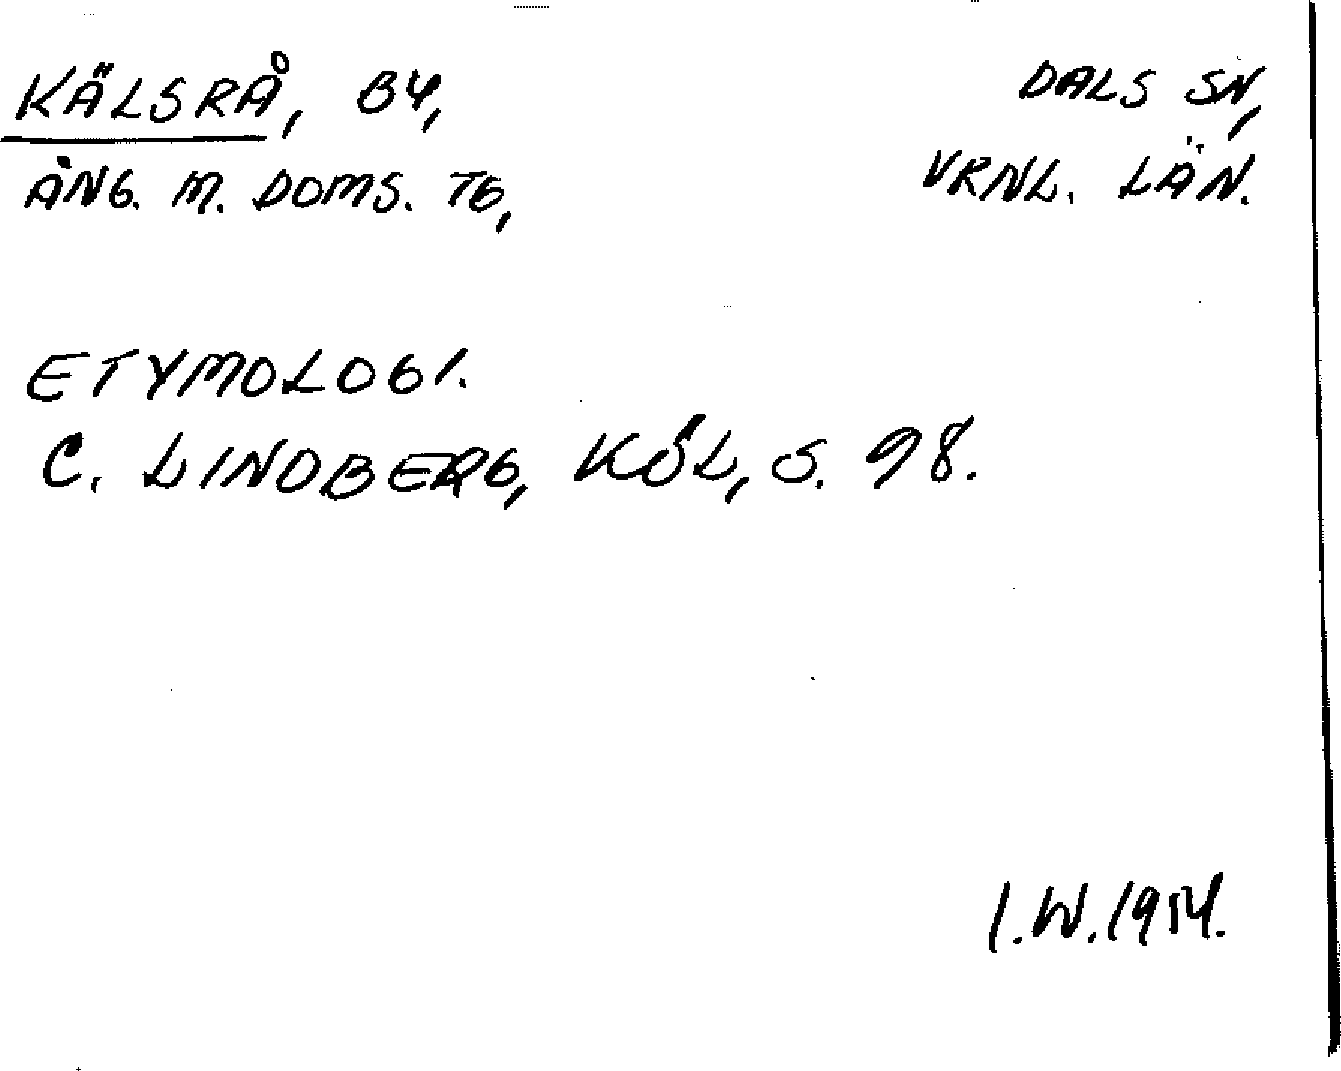 KÄLSRÅ, BY, DALS SN,
ÅNG. M. DOMS. TG, VRNL. LÄN.
ETYMOLOGI.
C. LINDBERG, KÖL, S. 98.
I.W. 1954.